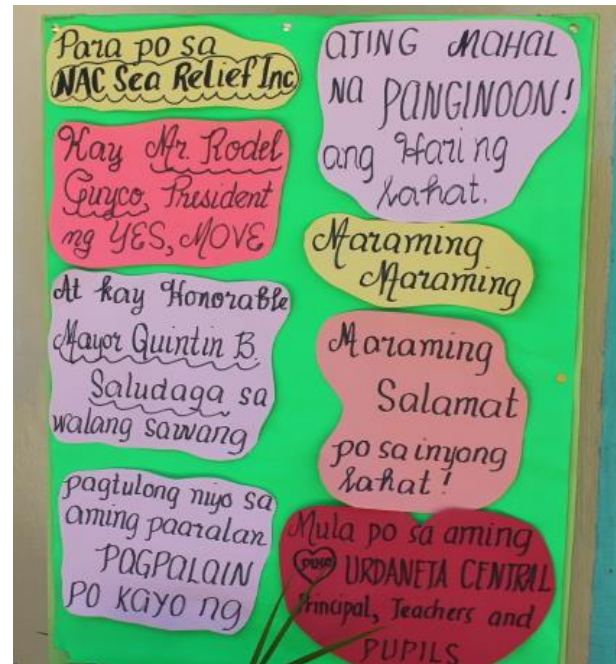 Para po sa
NAC Sea Relief Inc
Kay Mr. Rodel
Guyco, President
ng YES, MOVE
At kay Honorable
Mayor Quintin B.
Saludaga sa
walang sawang
pagtulong niyo sa
aming paaralan
PAGPALAIN
PO KAYO NG
ATING MAHAL
NA PANGINOON!
ang Hari ng
Lahat.
Maraming
Maraming
Maraming
Salamat
po sa inyong
Lahat!
Mula po sa aming
puso URDANETA CENTRAL
Principal, Teachers and
PUPILS